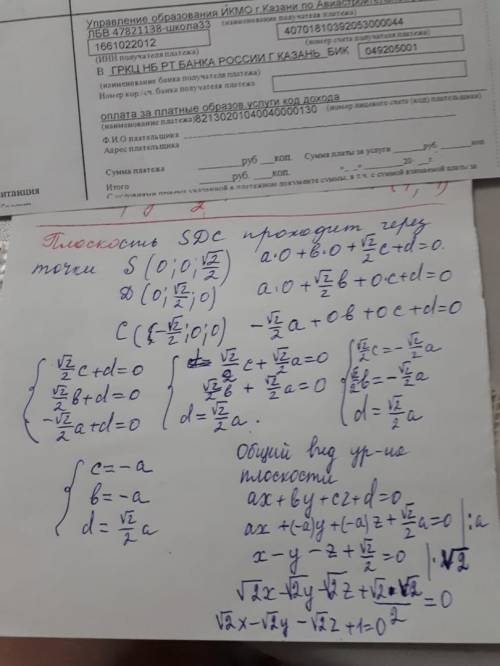 Управление образования ИКМО г Казани по Авиастроительн
(наименование получателя платежа)
ЛБВ 47821138-школа33
1661022012
40701810392053000044
(ИНН получателя платежа)
(номер счета получателя платежа)
В ГРКЦ НБ РТ БАНКА РОССИИ Г КАЗАНЬ БИК 049205001
(наименование банка получателя платежа)
Номер кор./сч. банка получателя платежа
оплата за платные образов услуги код дохода
82130201040040000130
(наименование платежа)
(номер лицевого счета (код) плательщика)
Ф.И.О плательщика
Адрес плательщика
Сумма платежа ______руб ____коп. Сумма платы за услуги ______руб. ____коп.
Итого ______руб. ____коп. 20 г.
итанция
Плоскость SDC проходит через
точки S (0; 0; √2/2) a·0+в·0+√2/2 c+d=0.
D (0; √2/2; 0) a·0+√2/2 в+0·c+d=0
C (-√2/2; 0; 0) -√2/2 a+0в+0c+d=0
{ √2/2 c+d=0 { √2/2 c+√2/2 a=0 { √2/2 c=-√2/2 a
√2/2 в+d=0 √2/2 в+√2/2 a=0 √2/2 в=-√2/2 a
-√2/2 a+d=0 d=√2/2 a. d=√2/2 a
{ c=-a
в=-a
d=√2/2 a
Общий вид ур-ие
плоскости
ax+вy+cz+d=0
ax+(-a)y+(-a)z+√2/2 a=0 |:a
x-y-z+√2/2=0 |·√2
√2x-√2y-√2z+√2·√2/2=0
√2x-√2y-√2z+1=0